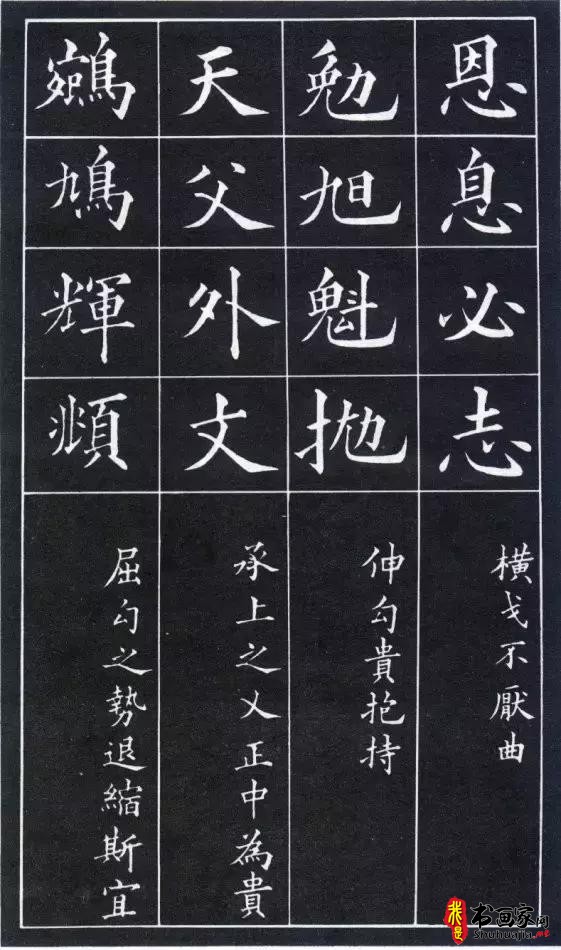 恩息必志
橫戈不厭曲
勉旭魁抛
伸勾貴抱持
天父外丈
承上之乂正中為貴
鵷鳩輝頫
屈勾之勢退縮斯宜
我是
书画家网
Shuhuajia.net